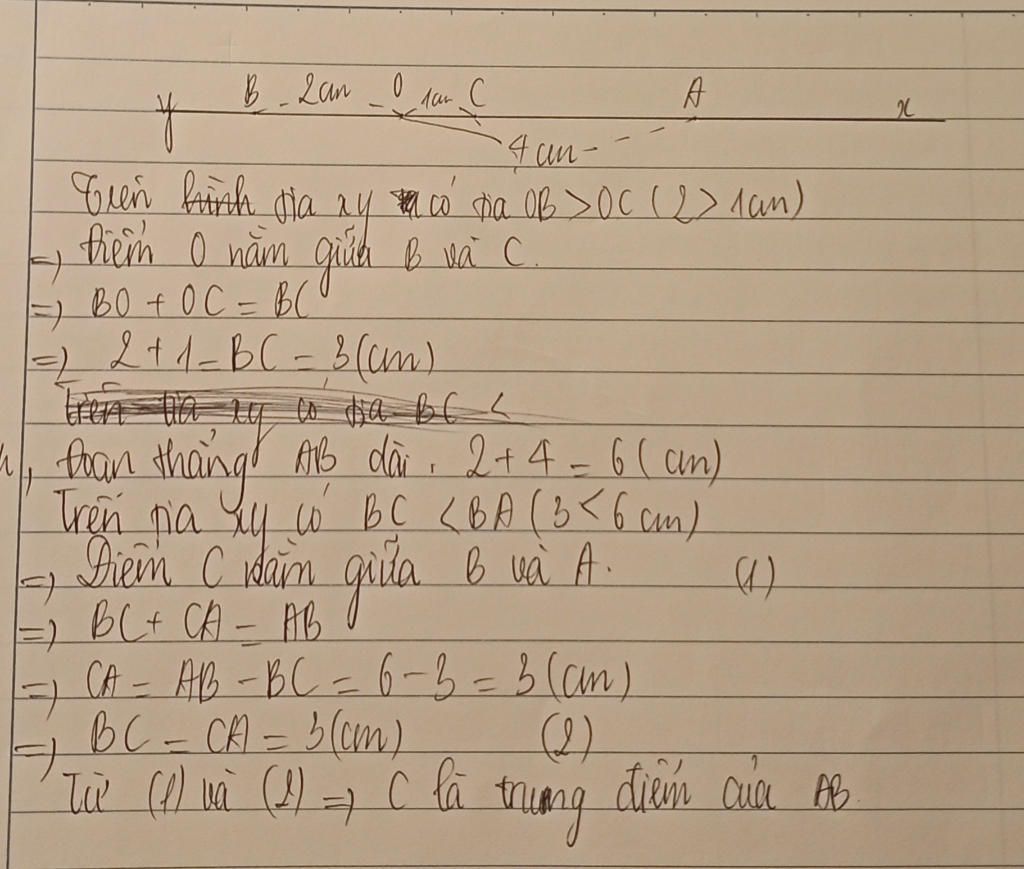 y B 2cm O 1cm C A x
4cm
Trên tia xy có tia OB > OC (2 > 1cm)
=> Điểm O nằm giữa B và C.
=> BO + OC = BC
=> 2 + 1 = BC = 3 (cm)
Trên tia xy có tia BC <
Đoạn thẳng AB dài: 2 + 4 = 6 (cm)
Trên tia xy có BC < BA (3 < 6 cm)
=> Điểm C nằm giữa B và A. (1)
=> BC + CA = AB
=> CA = AB - BC = 6 - 3 = 3 (cm)
=> BC = CA = 3 (cm) (2)
Từ (1) và (2) => C là trung điểm của AB.